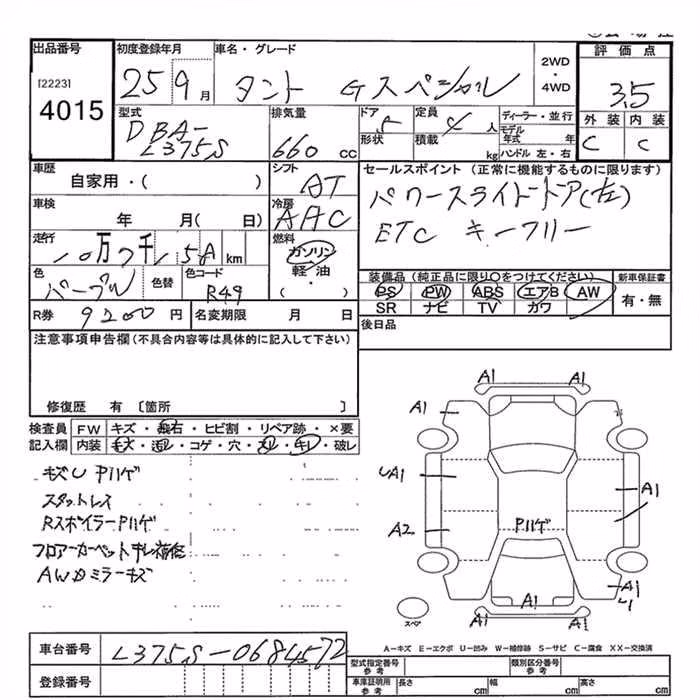 出品番号
[2223]
4015
初度登録年月
25 9月
車名・グレード
タント Gスペシャル
2WD・4WD
評価点
3.5
外装 内装
C C
型式
DBA-
L375S
排気量
660 cc
ドア 5
形状
定員 4人
積載 kg
ディーラー・並行
モデル年式 年
ハンドル 左・右
車歴
自家用・( )
シフト
AT
車検
年 月( 日)
冷房
AAC
走行
10万7千 km
燃料
ガソリン
軽・油
・( )
色
パープル
色替
色コード
R49
R券 9200円
名変期限 月 日
セールスポイント(正常に機能するものに限ります)
パワースライドドア(左)
ETC キーフリー
装備品(純正品に限り○をつけてください)
PS PW ABS エアB AW
SR ナビ TV カワ
新車保証書
有・無
後日品
注意事項申告欄(不具合内容等は具体的に記入して下さい)
修復歴 有 〔箇所 〕
検査員記入欄
FW キズ・飛石・ヒビ割・リペア跡・×要
内装 キズ・汚レ・コゲ・穴・スレ・キレ・破レ
キズU Pハゲ
スタットレス
RスポイラーPハゲ
フロアーカーペットキレ補修
AWカミラーキズ
A1 A1
A1
UA1
A1
A2
Pハゲ
A1
A1
A1 A1
スペア
A-キズ E-エクボ U-凹み W-補修跡 S-サビ C-腐食 XX-交換済
車台番号
L375S-0684572
登録番号
型式指定番号
参考
類別区分番号
参考
車庫証明用
参考
長さ cm 幅 cm 高さ cm